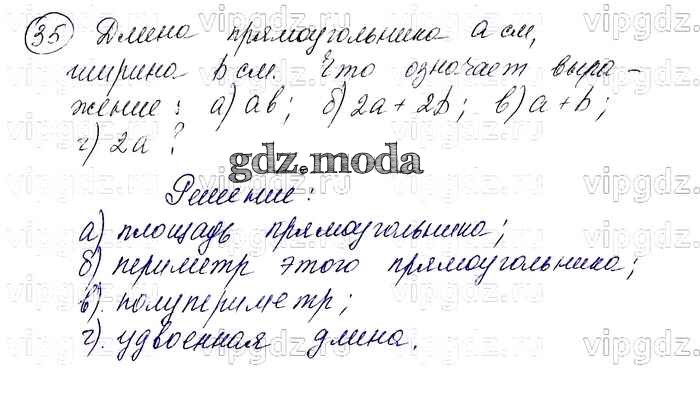 35 Длина прямоугольника a см,
ширина b см. Что означает выра-
жение: а) ab; б) 2a + 2b; в) a + b;
г) 2a ?
gdz.moda
Решение:
а) площадь прямоугольника;
б) периметр этого прямоугольника;
в). полупериметр;
г). удвоенная длина.
vipgdz.ru